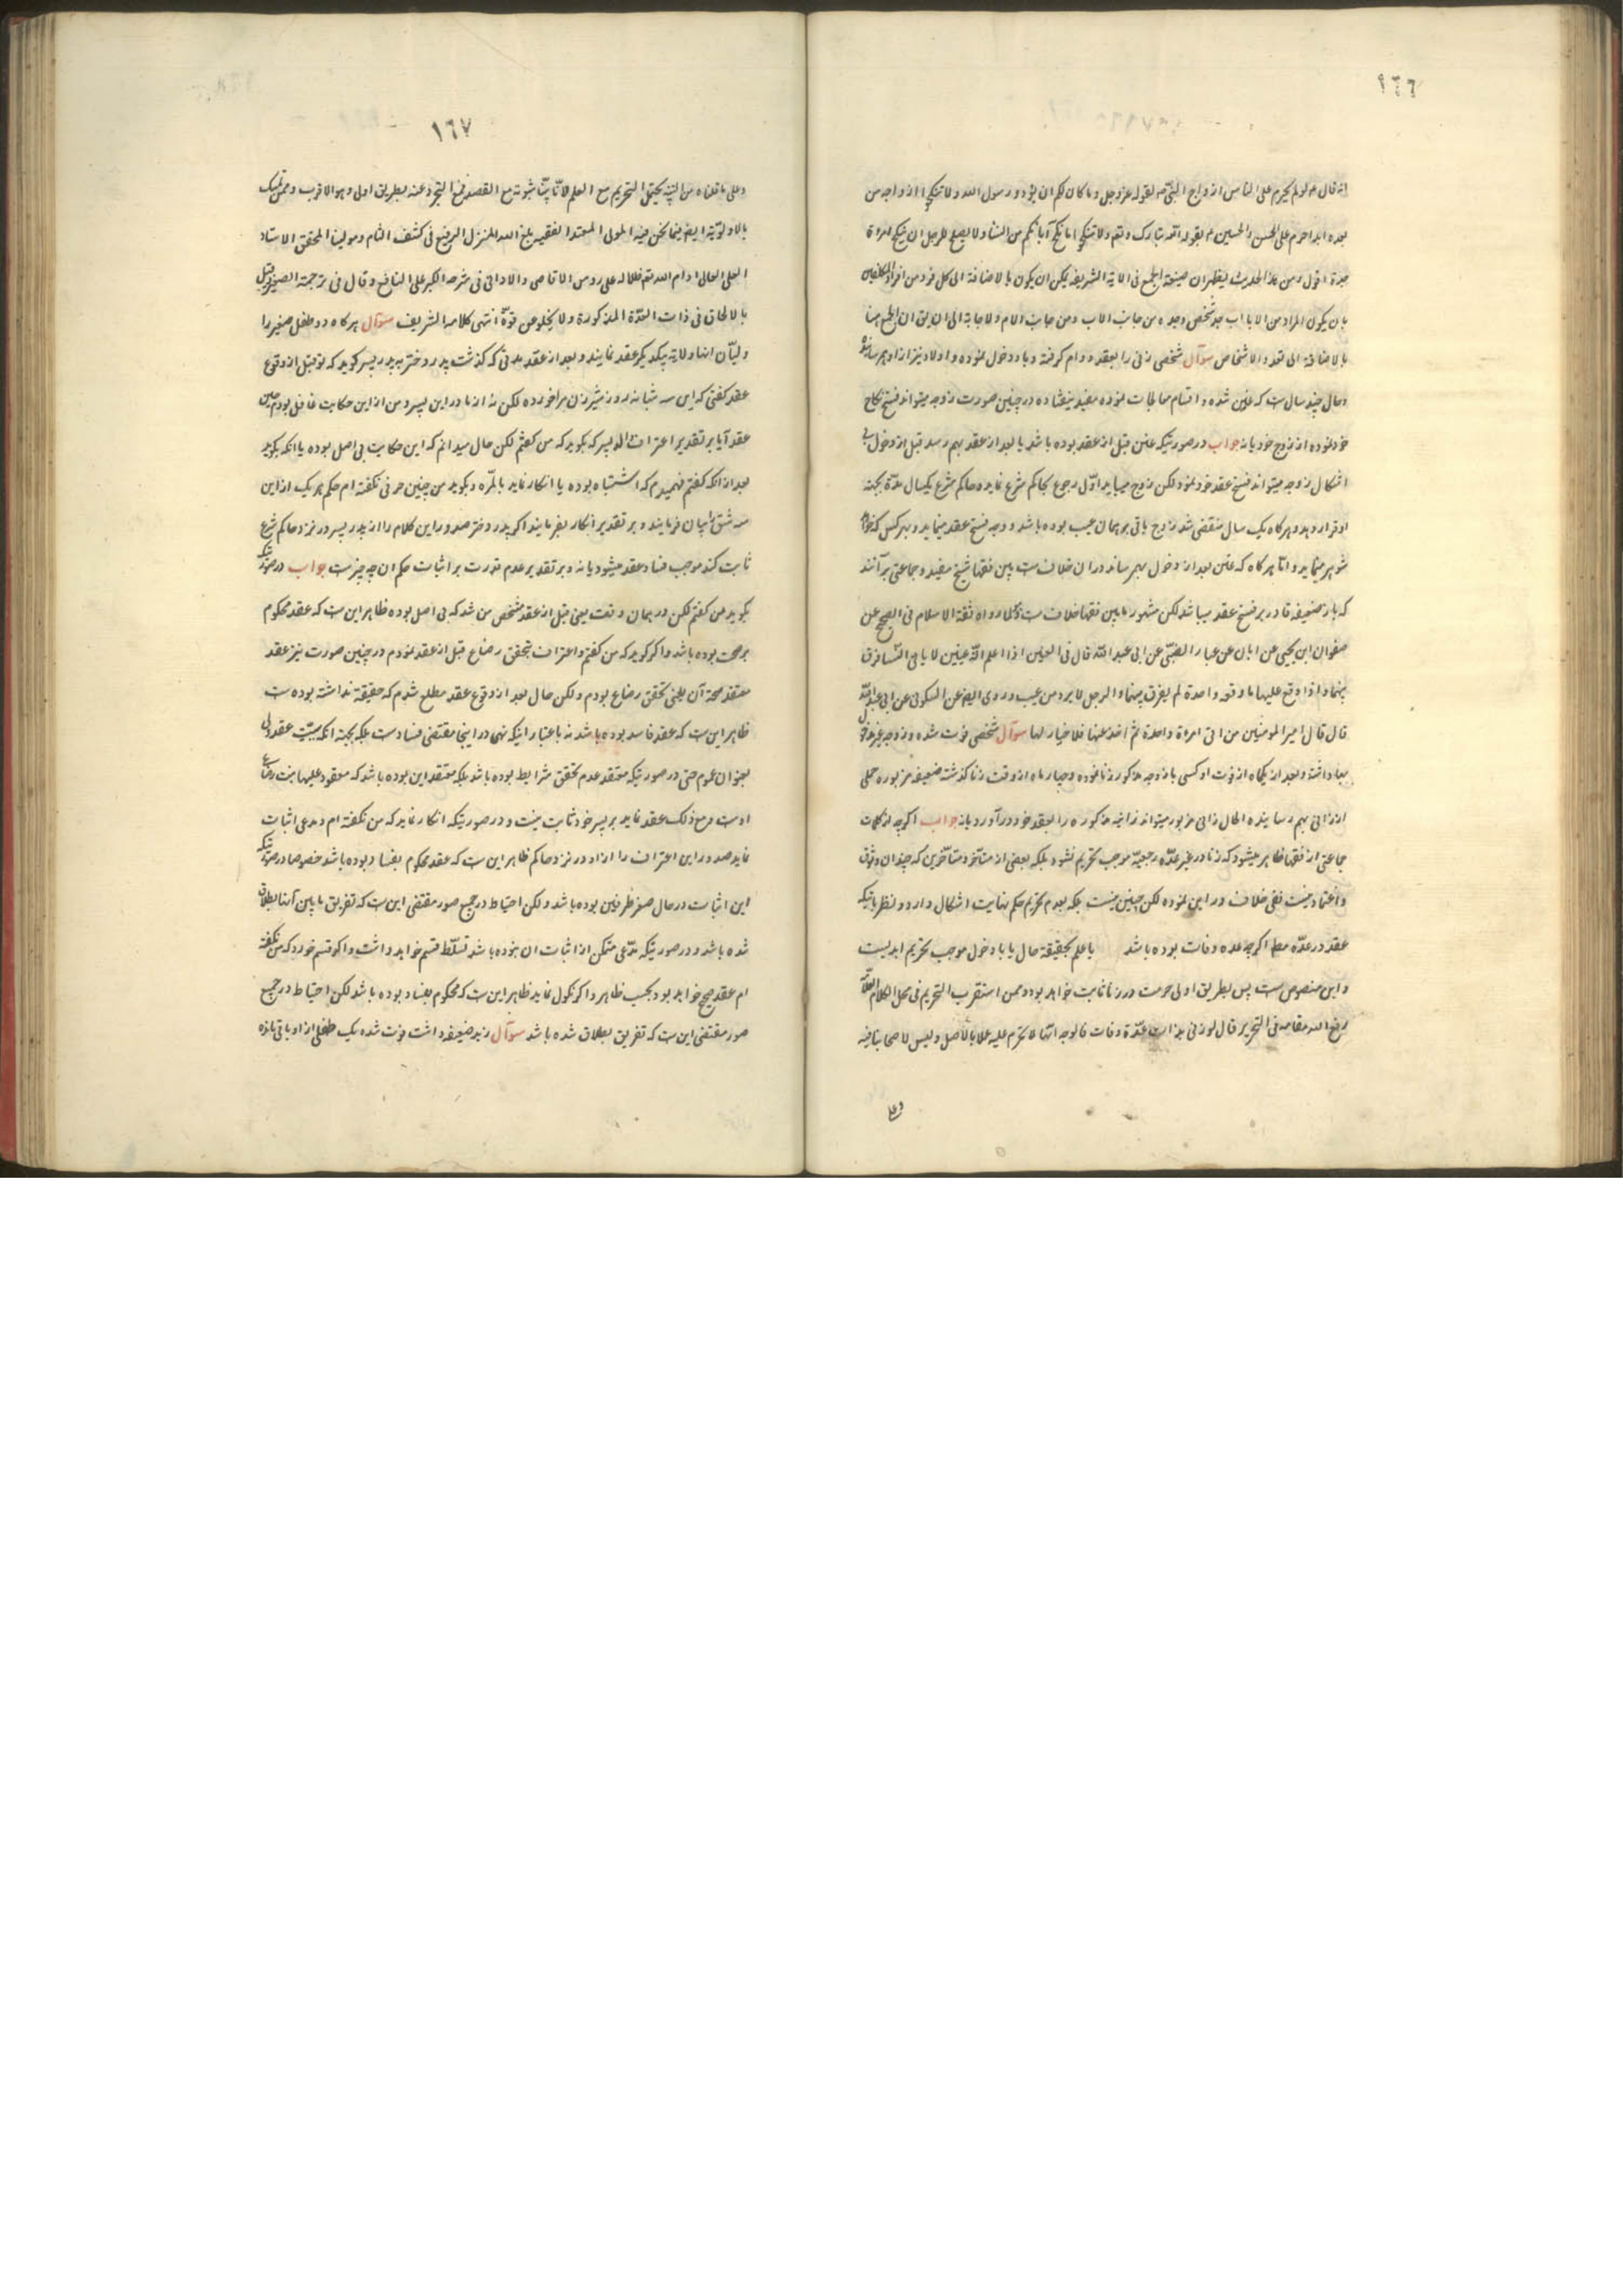 ١٦٦
انه قال ع لو لم يحرم على الناس ازواج النبى ص لقوله عز وجل وما كان لكم ان تؤذوا رسول الله ولا تنكحوا ازواجه من
بعده ابدا حرم على الحسن والحسين ع لقوله الله تبارك وتعم ولا تنكحوا ما نكح آباؤكم من النساء ولا يصلح للرجل ان ينكح امراة
جده اقول ومن هذا الحديث يظهر ان صيغة الجمع فى الاية الشريفه يمكن ان يكون بالاضافة الى كل فرد من افراد المكلفين
بان يكون المراد من الاباء اب هو شخص وجده من جانب الاب ومن جانب الام ولا حاجة الى ان يق ان الجمع هنا
بالاضافة الى تعدد الاشخاص سوآل شخصى زنى را بعقد دوام كرفته و با او دخول نموده و اولاد نيز از او بهم رسانده
و حال چند سال ست كه عنين شده و اقسام معالجات نموده مفيد نيفتاده در چنين صورت زوجه ميتواند فسخ نكاح
خود نموده از زوج خود يا نه جواب در صورتيكه عنن قبل از عقد بوده باشد يا بعد از عقد بهم رسد قبل از دخول بى
اشكال زوجه ميتواند فسخ عقد خود نمود لكن زوج ميبايد اوّل رجوع بحاكم شرع نمايد و حاكم شرع يكسال مدّة بجهته
او قرار دهد و هر كاه يك سال منقضى شد زوج باقى بر همان عيب بوده باشد زوجه فسخ عقد مينمايد و بهر كس كه خواهد
شوهر مينمايد و امّا هر كاه كه عنن بعد از دخول بهمرساند در ان خلاف ست بين فقها شيخ مفيد و جماعتى بر آنند
كه باز ضعيفه قادر بر فسخ عقد ميباشد لكن مشهور مابين فقها خلاف ست لما رواه ثقة الاسلام فى الصحيح عن
صفوان ابن يحيى عن ابان عن عباد الضبّى عن ابى عبد الله قال فى العنين اذا اعلم انّه عنين لا ياتى النّساء فرق
بينهما و اذا وقع عليها وقعه واحدة لم يفرق بينهما و الرجل لا يرد من عيب و روى ايضه عن السكونى عن ابى عبد الله
قال قال امير المومنين من اتى امراة واحدة ثم اخذ عنها فلا خيار لها سوآل شخصى فوت شده و زوجه غير مدخول
بها داشته و بعد از يكماه از فوت او كسى با زوجه مذكور زنا نموده و چهار ماه از وقت زنا كذشته ضعيفه مزبوره حملى
از زانى بهم رسانيده الحال زانى مزبور ميتواند زانيه مذكوره را بعقد خود در آورد يا نه جواب اكر چه از كلمات
جماعتى از فقها ظاهر ميشود كه زنا در غير عدّه رجعيّه موجب تحريم نشود بلكه بعضى از متأخر و متأخرين كه چندان وثوق
و اعتماد نيست نفى خلاف در اين نموده لكن چنين نيست بلكه بعدم تحريم حكم نهايت اشكال دارد و نظر باينكه
عقد در عدّه مط اكر چه عده وفات بوده باشد يا علم بحقيقة حال يا با دخول موجب تحريم ابديست
و اين منصوص ست پس بطريق اولى حرمت در زنا ثابت خواهد بود و ممن استقرب التحريم فى محل الكلام العلّامه
رفع الله مقامه فى التحرير قال لو زنى بذات عدّة وفات فالوجه انّها لا تحرم عليه عملا بالاصل و ليس لاصحابنا فيه
وعلى
١٦٧
وعلى ما قلناه من التنبيه يحتمل التحريم مع العلم لانّا بيّنا ثبوته مع القصد فمع التجرد عنه بطريق اولى وهو الاقرب وممن تمسك
بالاولويّة ايضه فيما نحن فيه المولى المعتمد الفقيه بلغ الله المنزل الرفيع فى كشف اللثام ومولينا المحقق الاستاد
العلى العالى ادام الله تعم ظلاله على روس الاقاصى والادانى فى شرحه الكبير على النافع وقال فى ترجمة الصغير وقيل
بالالحاق فى ذات العدّة المذكورة ولا يخلو عن قوّة انتهى كلامه الشريف سوآل هر كاه دو طفل صغير را
وليّان انها ولاية بيكديكر عقد نمايند و بعد از عقد مدتى كه كذشت پدر دختر به پدر پسر كويد كه تو قبل از وقوع
عقد كفتى كه اين سه شبانه روز شير زن مرا خورده لكن نه از مادر اين پسر و من از اين حكايت غافل بودم حين
عقد آيا بر تقدير اعتراف والد پسر كه بكويد كه من كفتم لكن حال ميدانم كه اين حكايت بى اصل بوده يا انكه بكويد
بعد از انكه كفتم فهميدم كه اشتباه بوده يا انكار نمايد بالمرّه و بكويد من چنين حرفى نكفته ام حكم هر يك از اين
سه شق را بيان فرمايند و بر تقدير انكار بفرمايند اكر پدر دختر صدور اين كلام را از پدر پسر در نزد حاكم شرع
ثابت كند موجب فساد عقد ميشود يا نه و بر تقدير عدم قدرت بر اثبات حكم ان چه چيز ست جواب در صورتيكه
بكويد من كفتم لكن در همان وقت يعنى قبل از عقد مشخص من شد كه بى اصل بوده ظاهر اين ست كه عقد محكوم
بر صحت بوده باشد و اكر كويد كه من كفتم و اعتراف بتحقق رضاع قبل از عقد نمودم در چنين صورت نيز عقد
معتقد صحة آن يعنى تحقق رضاع بودم و لكن حال بعد از وقوع عقد مطلع شدم كه حقيقة نداشته بوده ست
ظاهر اين ست كه عقد فاسد بوده باشد نه باعتبار اينكه نهى در اينجا مقتضى فساد ست بلكه بجهته انكه سببيّت عقد ولى
بعنوان عموم حتى در صورتيكه معتقد عدم تحقق شرايط بوده باشد بلكه معتقد اين بوده باشد كه معقود عليها بنت رضاعى
اوست و مع ذلك عقد نمايد بر پسر خود ثابت نيست و در صورتيكه انكار نمايد كه من نكفته ام و مدعى اثبات
نمايد صدور اين اعتراف را از او در نزد حاكم ظاهر اين ست كه عقد محكوم بفساد بوده باشد خصوصا در صورتيكه
اين اثبات در حال صغر طرفين بوده باشد و لكن احتياط در جميع صور مقتضى اين ست كه تفريق مابين آنها بطلاق
شده باشد و در صورتيكه مدّعى متمكن از اثبات ان نبوده باشد تسلّط قسم خواهد داشت و اكر قسم خورد كه من نكفته
ام عقد صحيح خواهد بود بحسب ظاهر و اكر نكول نمايد ظاهر اين ست كه محكوم بفساد بوده باشد لكن احتياط در جميع
صور مقتضى اين ست كه تفريق بطلاق شده باشد سوآل زيد ضعيفه داشت فوت شده يك طفلى از او باقى مانده